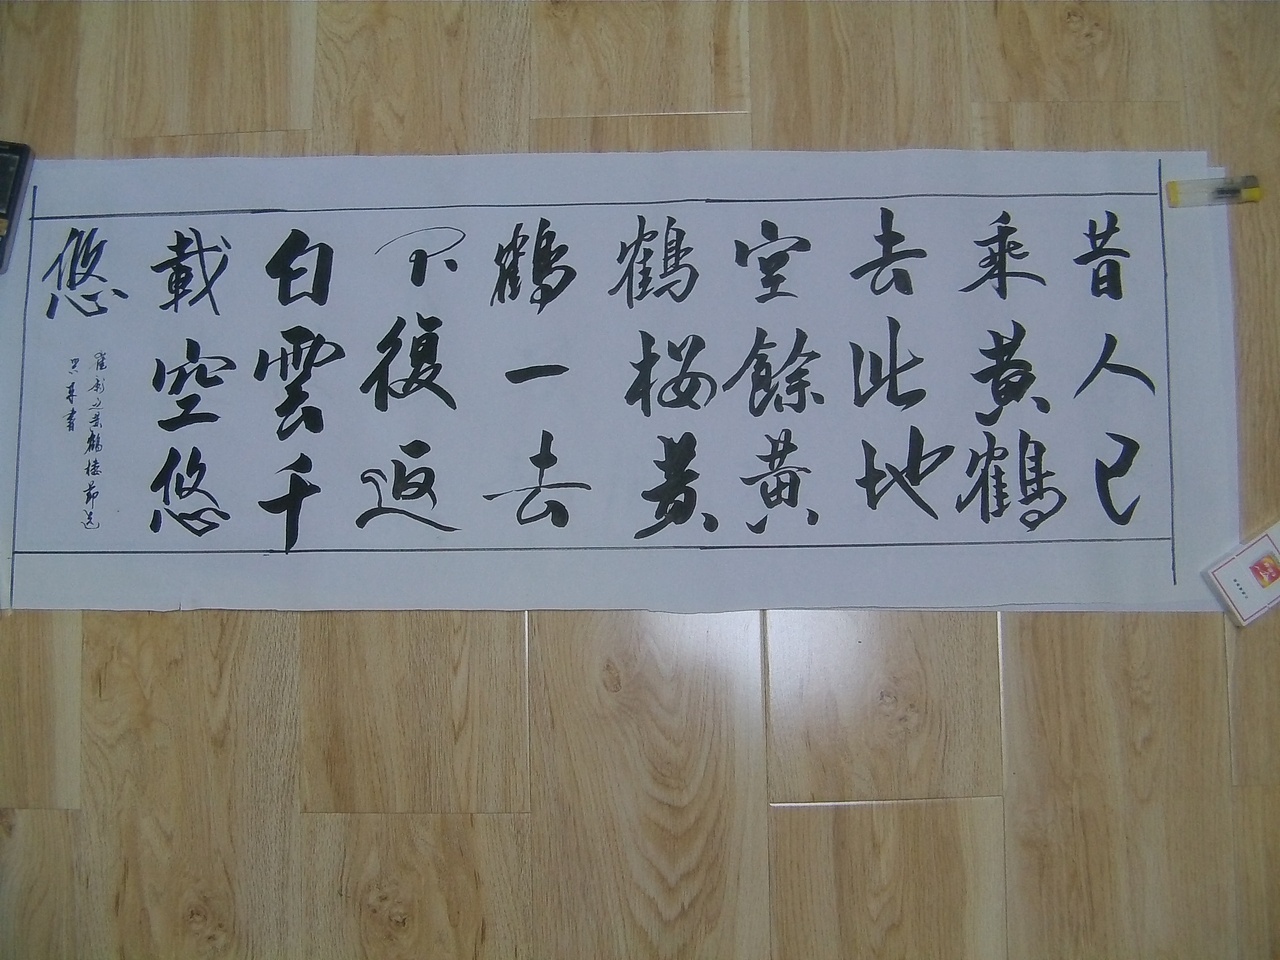 昔人已
乘黄鶴
去此地
空餘黄
鶴楼黄
鶴一去
不復返
白雲千
載空悠
悠
崔颢之黄鶴楼節选
書